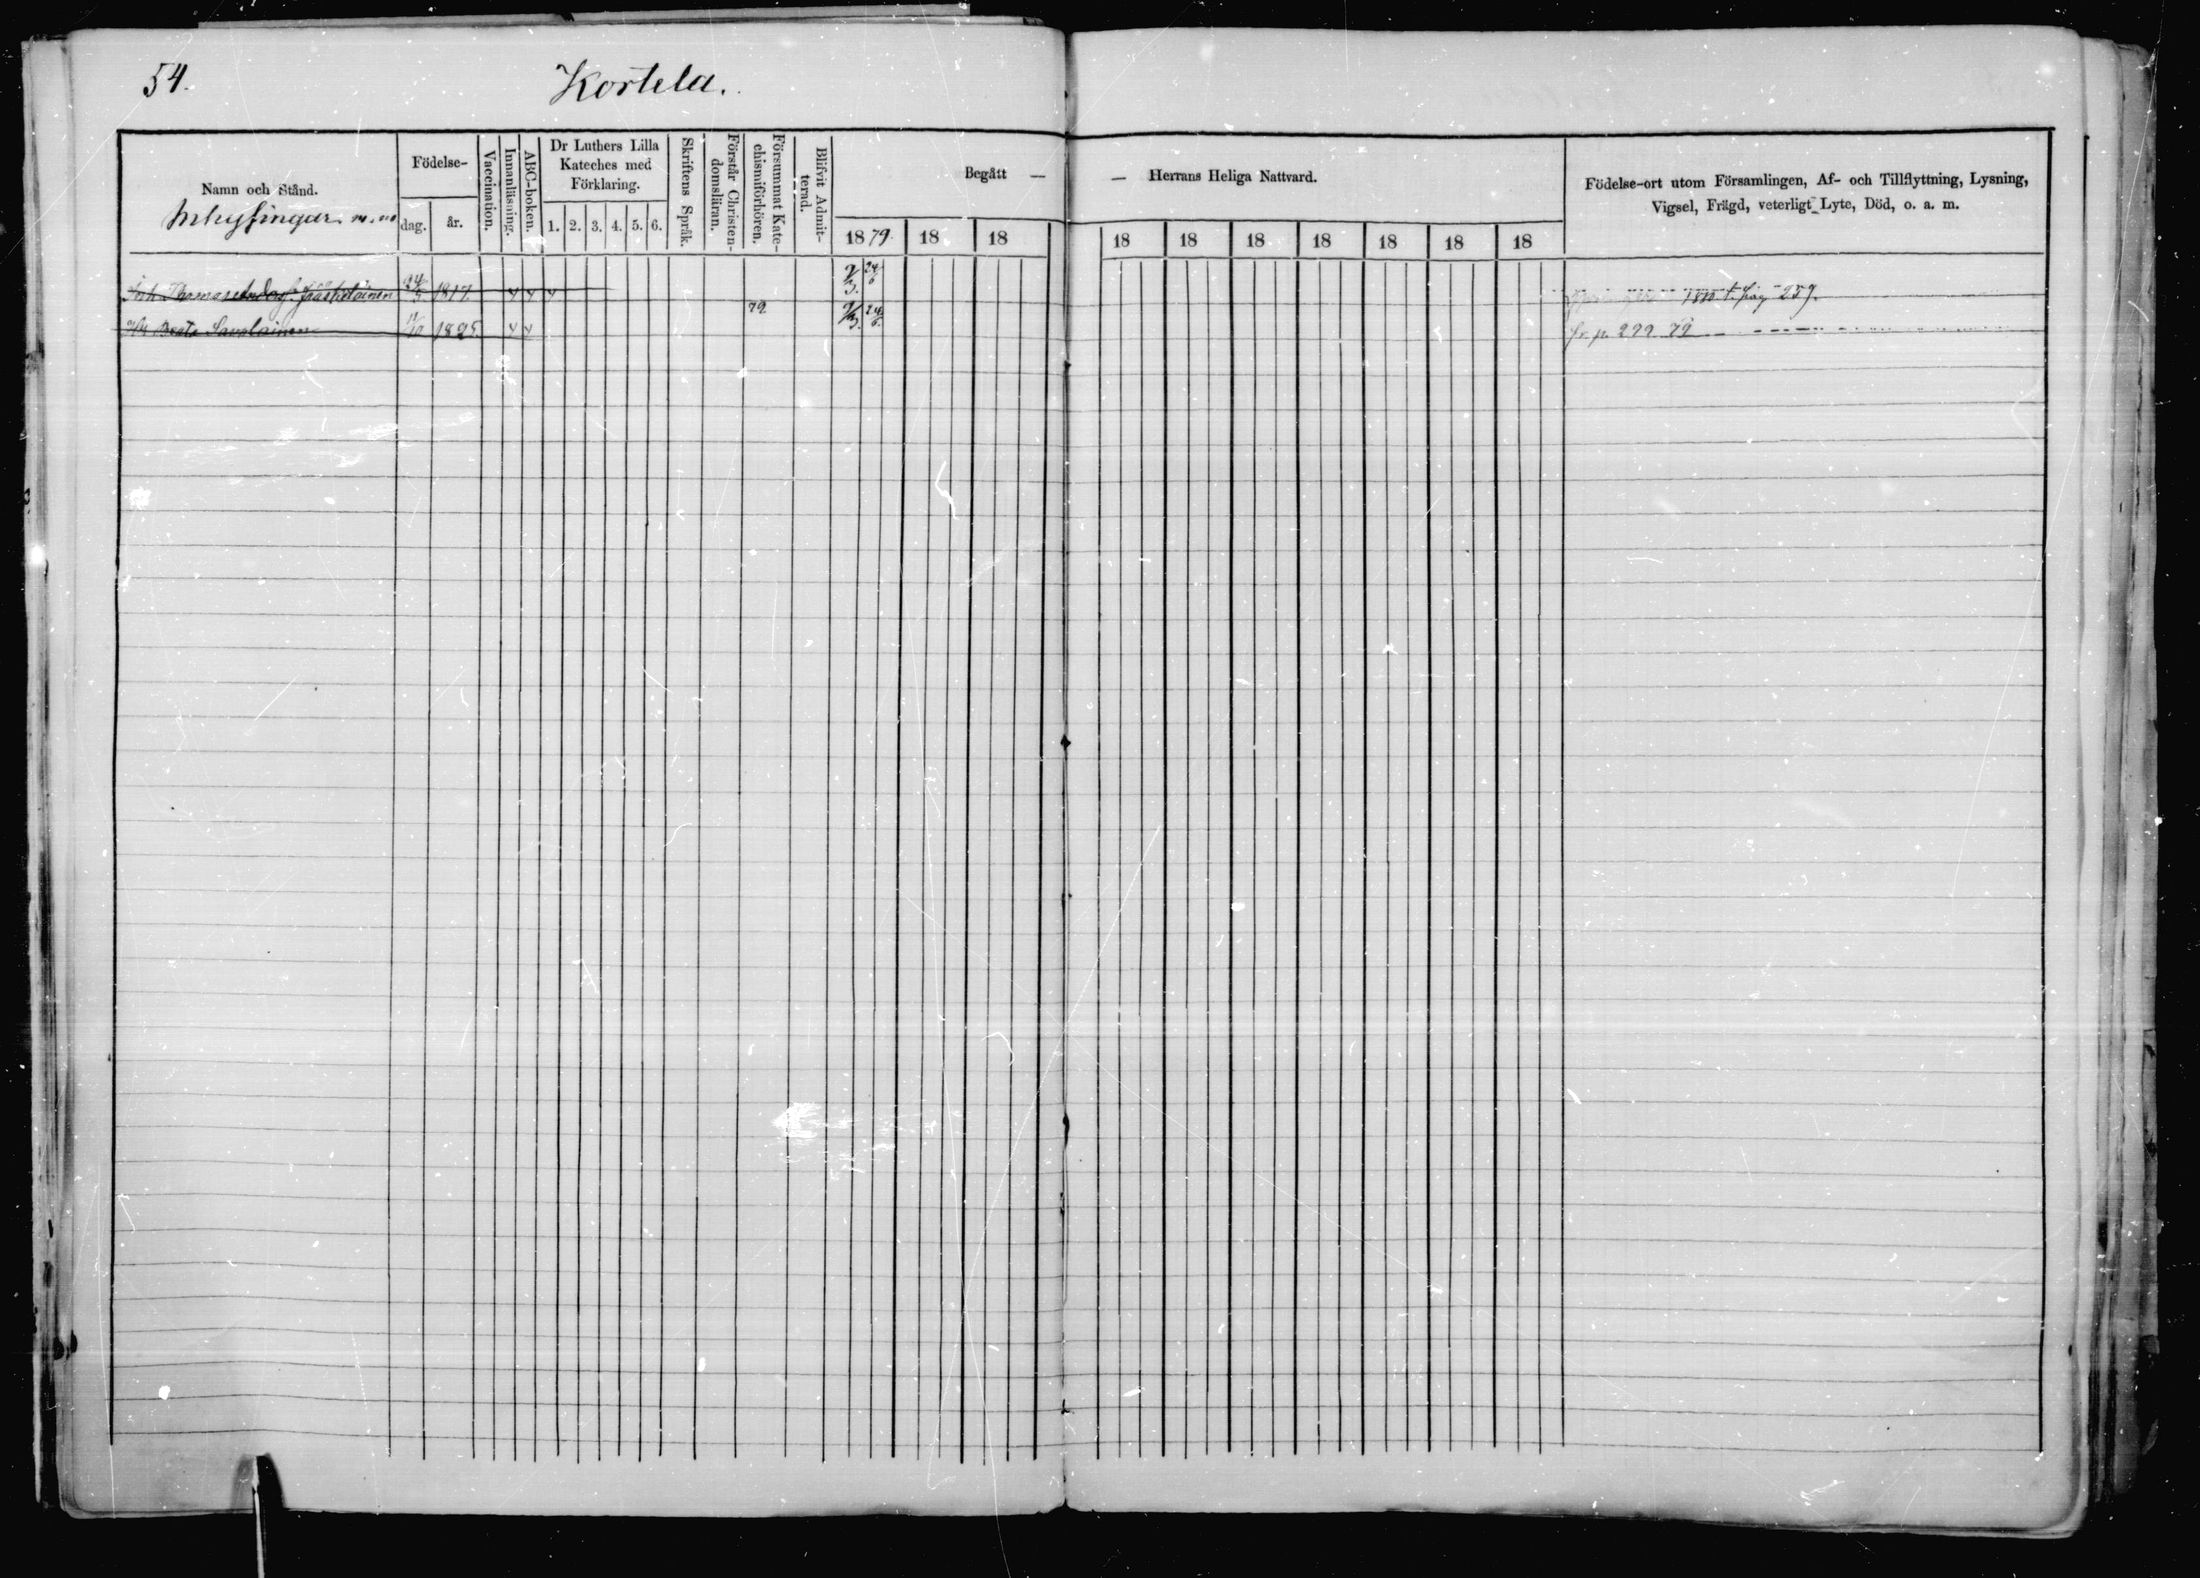 54. Kortela.
Namn och Stånd.
Inhysingar m. m
Födelse-
dag. år.
Vaccination.
Innanläsning.
ABC-boken.
Dr Luthers Lilla
Kateches med
Förklaring.
1. 2. 3. 4. 5. 6.
Skriftens Språk.
Förstår Christen-
domsläran.
Försummat Kate-
chismiförhören.
Blifvit Admit-
terad.
Begått —
— Herrans Heliga Nattvard.
1879. 18 18 18 18 18 18 18 18 18
Födelse-ort utom Församlingen, Af- och Tillflyttning, Lysning,
Vigsel, Frägd, veterligt Lyte, Död, o. a. m.
Inh Thomas Jääskeläinen 24/5 1817. 9/3. 24/6 pag 259.
Beata Savolainen 1825 79 9/3. 24/6. fr. p. 299 79